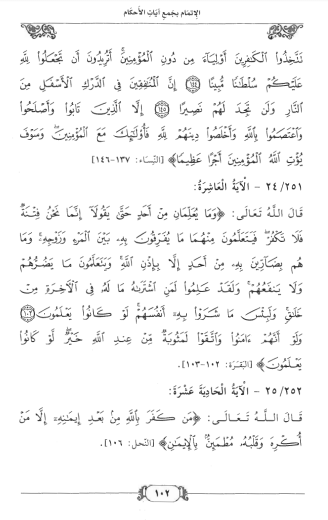 الإلمام بجمع آيات الأحكام
تَتَّخِذُوا۟ ٱلْكَٰفِرِينَ أَوْلِيَآءَ مِن دُونِ ٱلْمُؤْمِنِينَ ۚ أَتُرِيدُونَ أَن تَجْعَلُوا۟ لِلَّهِ
عَلَيْكُمْ سُلْطَٰنًا مُّبِينًا ﴿١٤٤﴾ إِنَّ ٱلْمُنَٰفِقِينَ فِى ٱلدَّرْكِ ٱلْأَسْفَلِ مِنَ
ٱلنَّارِ وَلَن تَجِدَ لَهُمْ نَصِيرًا ﴿١٤٥﴾ إِلَّا ٱلَّذِينَ تَابُوا۟ وَأَصْلَحُوا۟
وَٱعْتَصَمُوا۟ بِٱللَّهِ وَأَخْلَصُوا۟ دِينَهُمْ لِلَّهِ فَأُو۟لَٰٓئِكَ مَعَ ٱلْمُؤْمِنِينَ ۖ وَسَوْفَ
يُؤْتِ ٱللَّهُ ٱلْمُؤْمِنِينَ أَجْرًا عَظِيمًا﴾ [النِّسَاء: ١٣٧-١٤٦]
٢٤/٢٥١ - الآيَةُ العَاشِرَةُ:
قَالَ اللَّهُ تَعَالَى: ﴿وَمَا يُعَلِّمَانِ مِنْ أَحَدٍ حَتَّىٰ يَقُولَآ إِنَّمَا نَحْنُ فِتْنَةٌ
فَلَا تَكْفُرْ ۖ فَيَتَعَلَّمُونَ مِنْهُمَا مَا يُفَرِّقُونَ بِهِۦ بَيْنَ ٱلْمَرْءِ وَزَوْجِهِۦ ۚ وَمَا
هُم بِضَآرِّينَ بِهِۦ مِنْ أَحَدٍ إِلَّا بِإِذْنِ ٱللَّهِ ۚ وَيَتَعَلَّمُونَ مَا يَضُرُّهُمْ
وَلَا يَنفَعُهُمْ ۚ وَلَقَدْ عَلِمُوا۟ لَمَنِ ٱشْتَرَىٰهُ مَا لَهُۥ فِى ٱلْـَٔاخِرَةِ مِنْ
خَلَٰقٍ ۚ وَلَبِئْسَ مَا شَرَوْا۟ بِهِۦٓ أَنفُسَهُمْ ۚ لَوْ كَانُوا۟ يَعْلَمُونَ ﴿١٠٢﴾
وَلَوْ أَنَّهُمْ ءَامَنُوا۟ وَٱتَّقَوْا۟ لَمَثُوبَةٌ مِّنْ عِندِ ٱللَّهِ خَيْرٌ ۖ لَّوْ كَانُوا۟
يَعْلَمُونَ﴾ [البَقَرَة: ١٠٢-١٠٣].
٢٥/٢٥٢ - الآيَةُ الحَادِيَةَ عَشْرَةَ:
قَالَ اللَّهُ تَعَالَى: ﴿مَن كَفَرَ بِٱللَّهِ مِنۢ بَعْدِ إِيمَٰنِهِۦٓ إِلَّا مَنْ
أُكْرِهَ وَقَلْبُهُۥ مُطْمَئِنٌّۢ بِٱلْإِيمَٰنِ﴾ [النَّحل: ١٠٦].
١٠٢